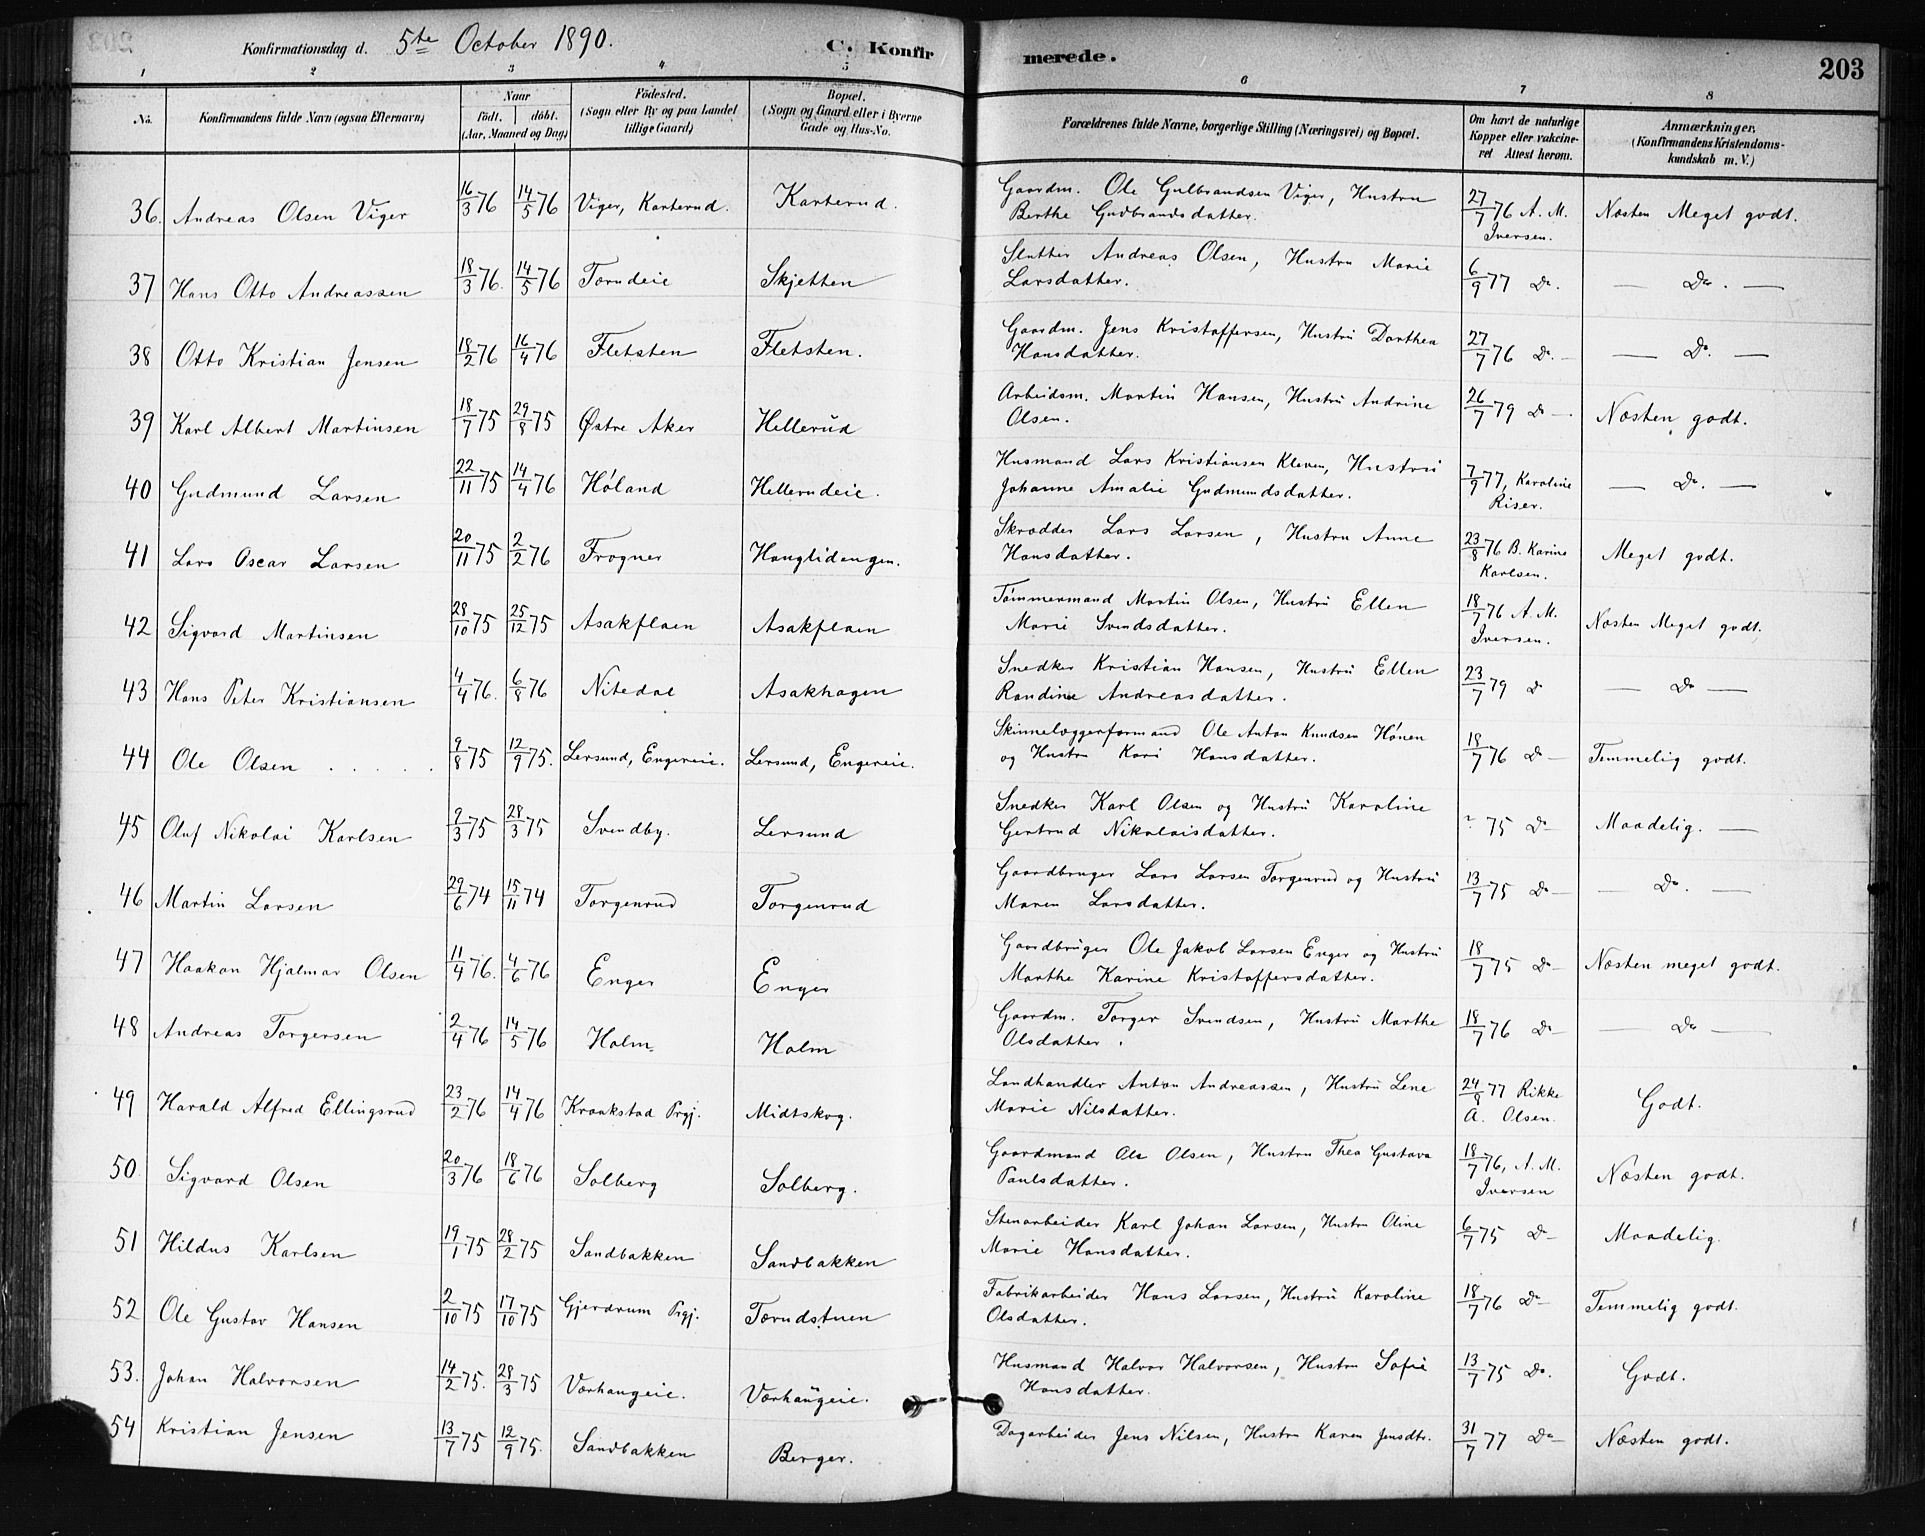 Konfirmationsdag d. 5te October 1890. C. Konfirmerede. 203
1 2 3 4 5 6 7 8
No. Konfirmandens fulde Navn (ogsaa Efternavn) Naar født. døbt. (Aar, Maaned og Dag) Fødested. (Sogn eller By og paa Landet tillige Gaard) Bopæl. (Sogn og Gaard eller i Byerne Gade og Hus-No. Forældrenes fulde Navne, borgerlige Stilling (Næringsvei) og Bopæl. Om havt de naturlige Kopper eller vakcineret Attest herom. Anmærkninger. (Konfirmandens Kristendomskundskab m. V.)
36. Andreas Olsen Viger 16/3 76 14/5 76 Viger, Karterud. Karterud. Gaardm. Ole Gulbrandsen Viger, Hustru Berthe Gudbrandsdatter. 27/7 76 A. M. Iversen. Næsten Meget godt.
37 Hans Otto Andreassen 18/3 76. 14/5 76 Torudeie Skjetten Slutter Andreas Olsen, Hustru Marie Larsdatter. 6/9 77 Do. — Do. —
38 Otto Kristian Jensen 18/2 76 16/4 76 Fletsten Fletsten. Gaardm. Jens Kristoffersen, Hustru Dorthea Hansdatter. 27/7 76 Do. — — Do. —
39 Karl Albert Martinsen 18/7 75 29/8 75 Østre Aker Hellerud Arbeidsm. Martin Hansen, Hustru Andrine Olsen. 26/7 79 Do — Næsten godt.
40 Gudmund Larsen 22/11 75 14/4 76 Høland Hellerudeie. Husmand Lars Kristiansen Kleven, Hustru Johanne Amalie Gudmundsdatter. 7/9 77, Karoline Riser. — Do. —
41 Lars Oscar Larsen 20/11 75 2/2 76 Frogner Hauglidengen. Skrædder Lars Larsen, Hustru Anne Hansdatter. 23/8 76 B. Karine Karlsen. Meget godt.
42 Sigvard Martinsen 28/10 75 25/12 75 Asakflaen Asakflaen Tømmermand Martin Olsen, Hustru Ellen Marie Svendsdatter. 18/7 76 A. M. Iversen. Næsten Meget godt.
43 Hans Peter Kristiansen 4/4 76. 6/8 76 Nitedal Asakhagen Snedker Kristian Hansen, Hustru Ellen Randine Andreasdatter. 23/7 79 Do — Do —
44 Ole Olsen . . . . . 9/8 75 12/9 75. Lersund, Engereie. Lersund, Engereie. Skinnelæggerformand Ole Anton Knudsen Hønen og Hustru Kari Hansdatter. 18/7 76 Do — Temmelig godt.
45 Oluf Nikolai Karlsen 9/3 75 28/3 75 Svendby. Lersund Snedker Karl Olsen og Hustru Karoline Gertrud Nikolaisdatter. ? 75 Do — Maadelig. —
46 Martin Larsen 29/6 74 15/11 74 Torgenrud Torgenrud Gaardbruger Lars Larsen Torgenrud og Hustru Maren Larsdatter. 13/7 75 Do — — Do. —
47 Haakon Hjalmar Olsen 11/4 76. 4/6 76 Enger Enger Gaardbruger Ole Jakob Larsen Enger og Hustru Marthe Karine Kristoffersdatter. 18/7 75 Do — Næsten meget godt.
48 Andreas Torgersen 2/4 76 14/5 76 Holm Holm Gaardm. Torger Svendsen, Hustru Marthe Olsdatter. 18/7 76 Do — — Do —
49 Harald Alfred Ellingsrud 23/2 76 14/4 76 Kraakstad Prgj. Midtskog. Landhandler Anton Andreassen, Hustru Lene Marie Nilsdatter. 24/8 77 Rikke A. Olsen. Godt.
50. Sigvard Olsen 20/3 76 18/6 76 Solberg Solberg. Gaardmand Ole Olsen, Hustru Thea Gustava Paulsdatter. 18/7 76, A. M. Iversen Næsten godt.
51 Hildus Karlsen 19/1 75 28/2 75 Sandbakken Sandbakken Stenarbeider Karl Johan Larsen, Hustru Oline Marie Hansdatter. 6/7 75 Do — Maadelig.
52 Ole Gustav Hansen 2/10 75 17/10 75 Gjerdrum Prgj. Torudstuen Fabrikarbeider Hans Larsen, Hustru Karoline Olsdatter. 18/7 76 Do — Temmelig godt.
53. Johan Halvorsen 14/2 75. 28/3 75 Vørhaugeie. Vørhaugeie. Husmand Halvor Halvorsen, Hustru Sofie Hansdatter. 13/7 75 Do. Godt.
54 Kristian Jensen 13/7 75 12/9 75. Sandbakken Berger. Dagarbeider Jens Nilsen, Hustru Karen Jensdtr. 31/7 77 Do — Næsten godt.